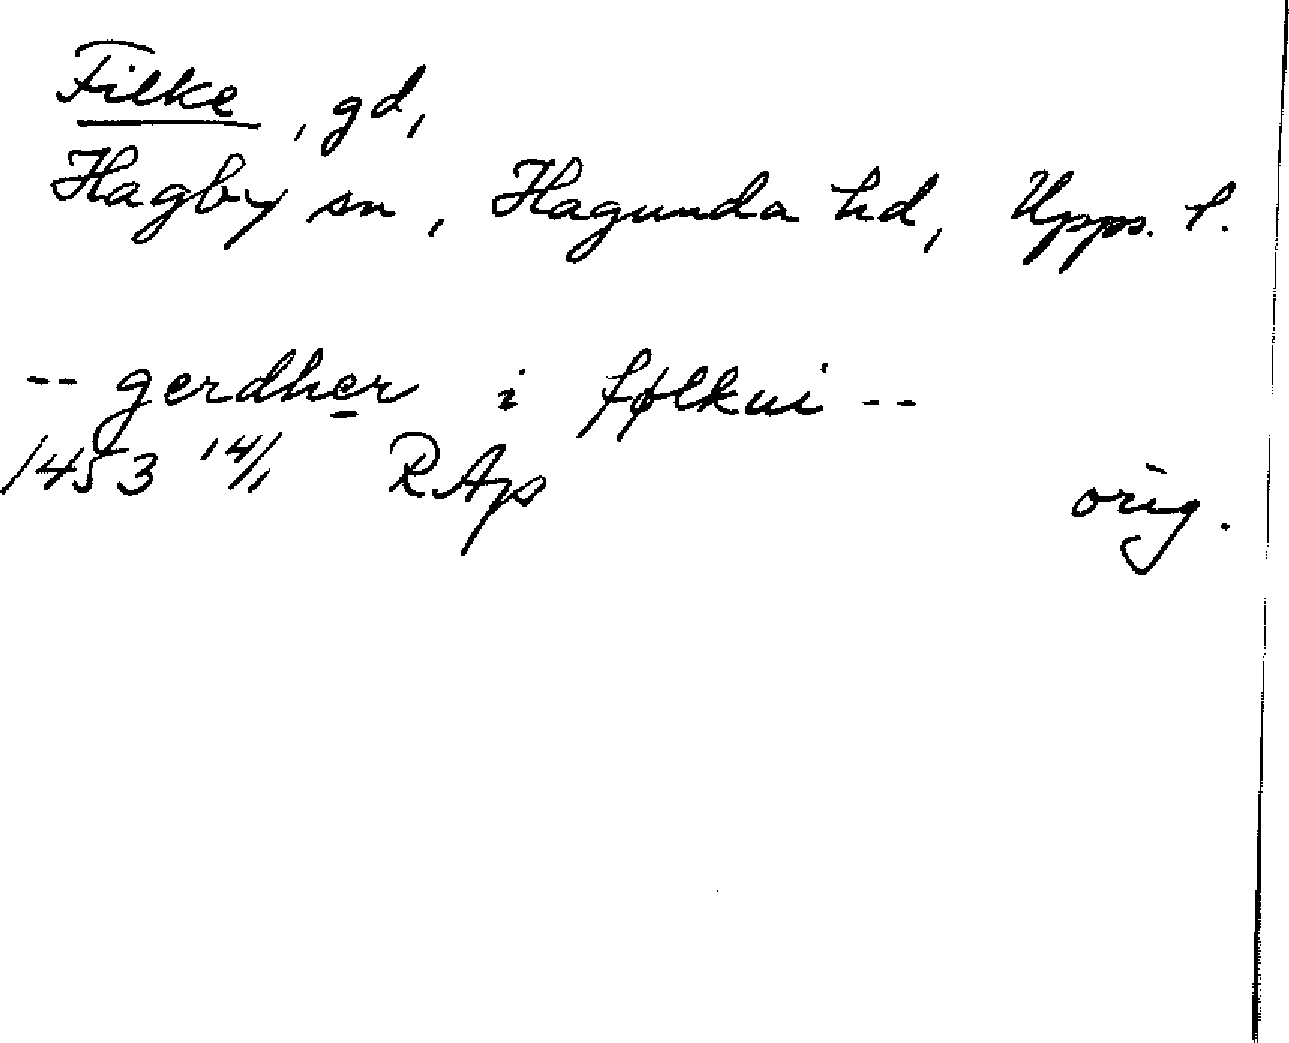 Filke, gd,
Hagby sn, Hagunda hd, Upps. l.
-- gerdher i følkui --
1453 14/1 RAp orig.